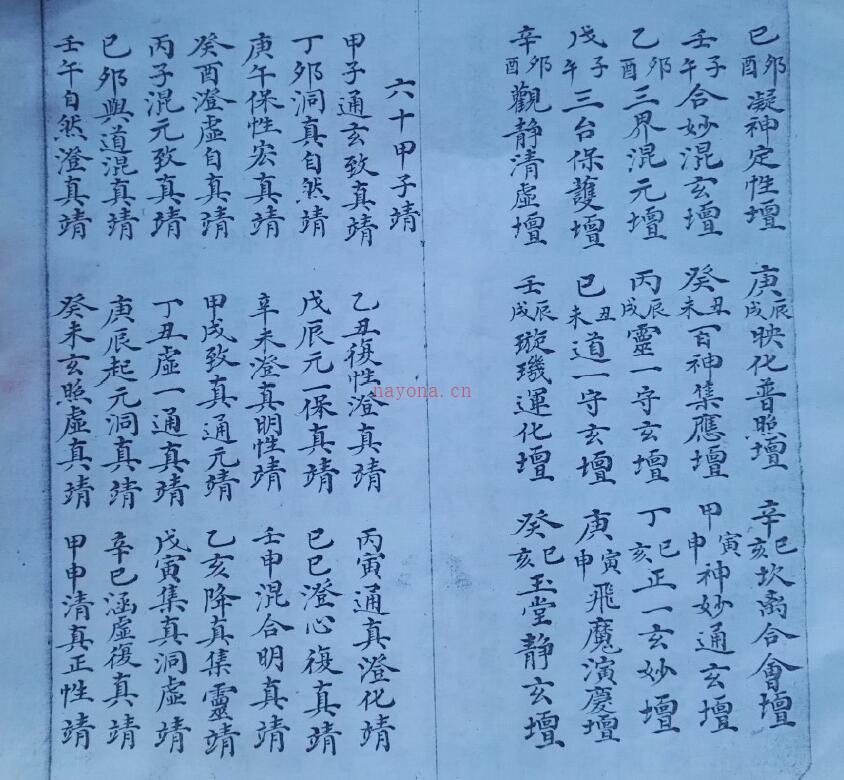 己卯酉凝神定性壇 庚辰戌映化普照壇 辛巳亥坎离合會壇
壬子午合妙混玄壇 癸丑未百神集應壇 甲寅申神妙通玄壇
乙卯酉三界混元壇 丙辰戌靈一守玄壇 丁巳亥正一玄妙壇
戊子午三台保護壇 己丑未道一守玄壇 庚寅申飛魔演慶壇
辛卯酉觀静清虛壇 壬辰戌璇璣運化壇 癸巳亥玉堂静玄壇
六十甲子靖
甲子通玄致真靖 乙丑復性澄真靖 丙寅通真澄化靖
丁卯洞真自然靖 戊辰元一保真靖 己巳澄心復真靖
庚午保性宏真靖 辛未澄真明性靖 壬申混合明真靖
癸酉澄虛自真靖 甲戌致真通元靖 乙亥降真集靈靖
丙子混元致真靖 丁丑虛一通真靖 戊寅集真洞虛靖
己卯與道混真靖 庚辰起元洞真靖 辛巳涵虛復真靖
壬午自然澄真靖 癸未玄照虛真靖 甲申清真正性靖
nayona.cn